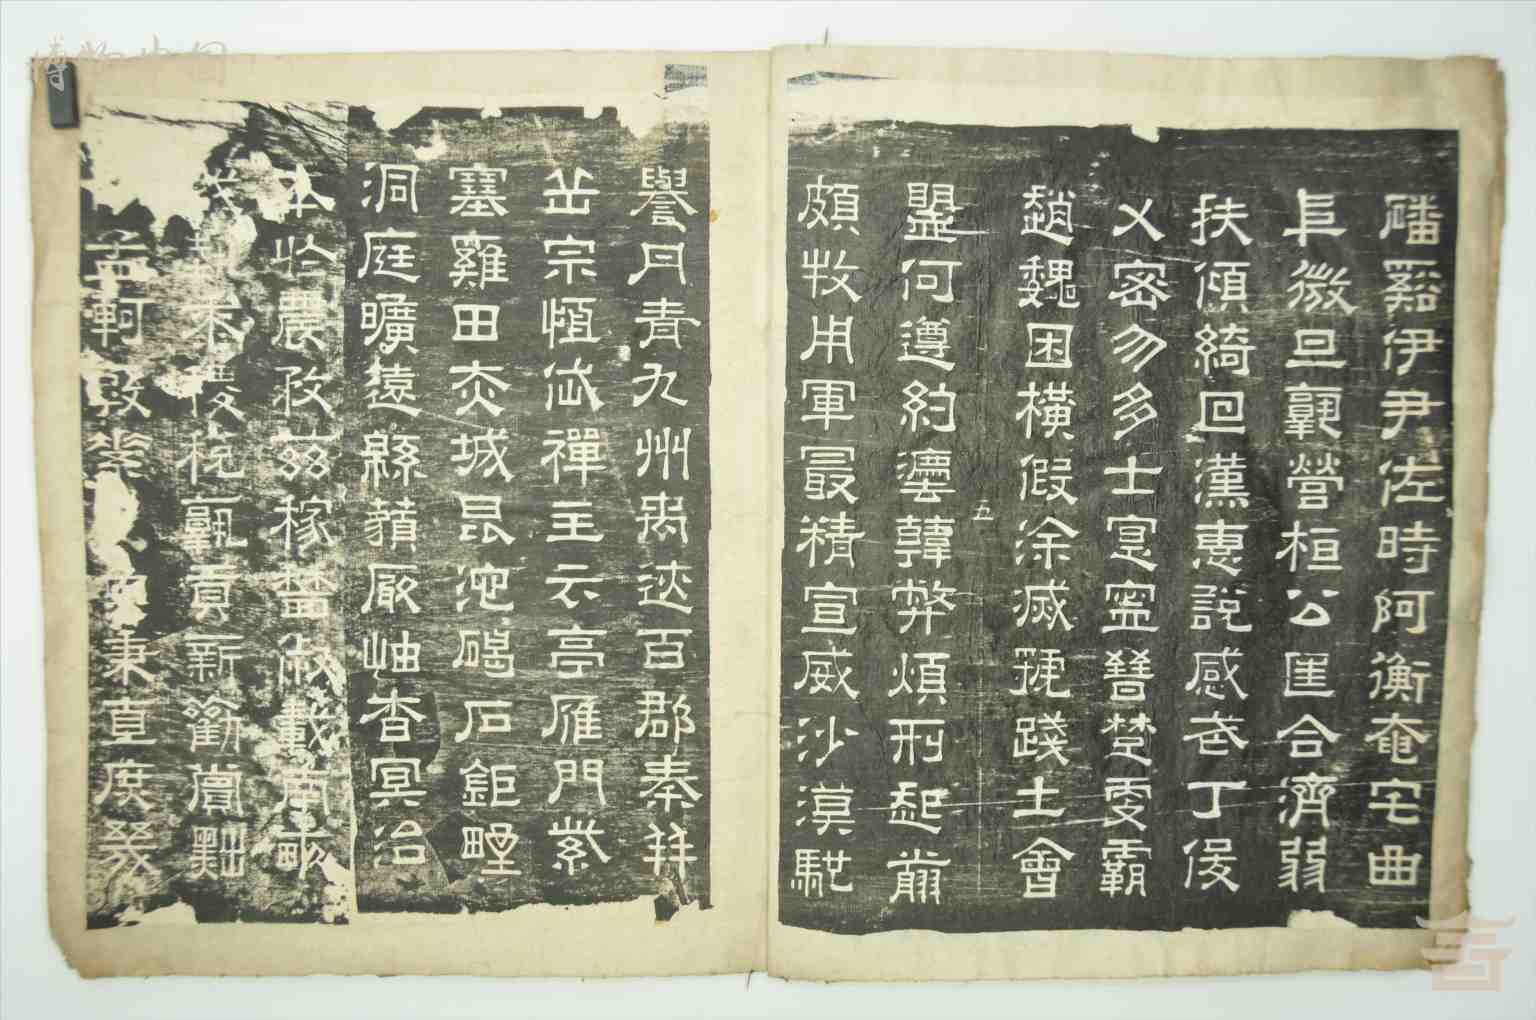 博物中国
磻谿伊尹佐時阿衡奄宅曲
阜微旦孰營桓公匡合濟弱
扶傾綺回漢惠說感武丁俊
乂密勿多士寔寧晉楚更霸
趙魏困橫假途滅虢踐土會
盟何遵約灋韓弊煩刑起翦
五
頗牧用軍最精宣威沙漠馳
譽丹青九州禹跡百郡秦并
岳宗恆岱禪主云亭雁門紫
塞雞田赤城昆池碣石鉅野
洞庭曠遠綿藐巖岫杳冥治
本於農務茲稼穡俶載南畝
我藝黍稷稅孰貢新勸賞黜
孟軻敦素魚秉直庶幾